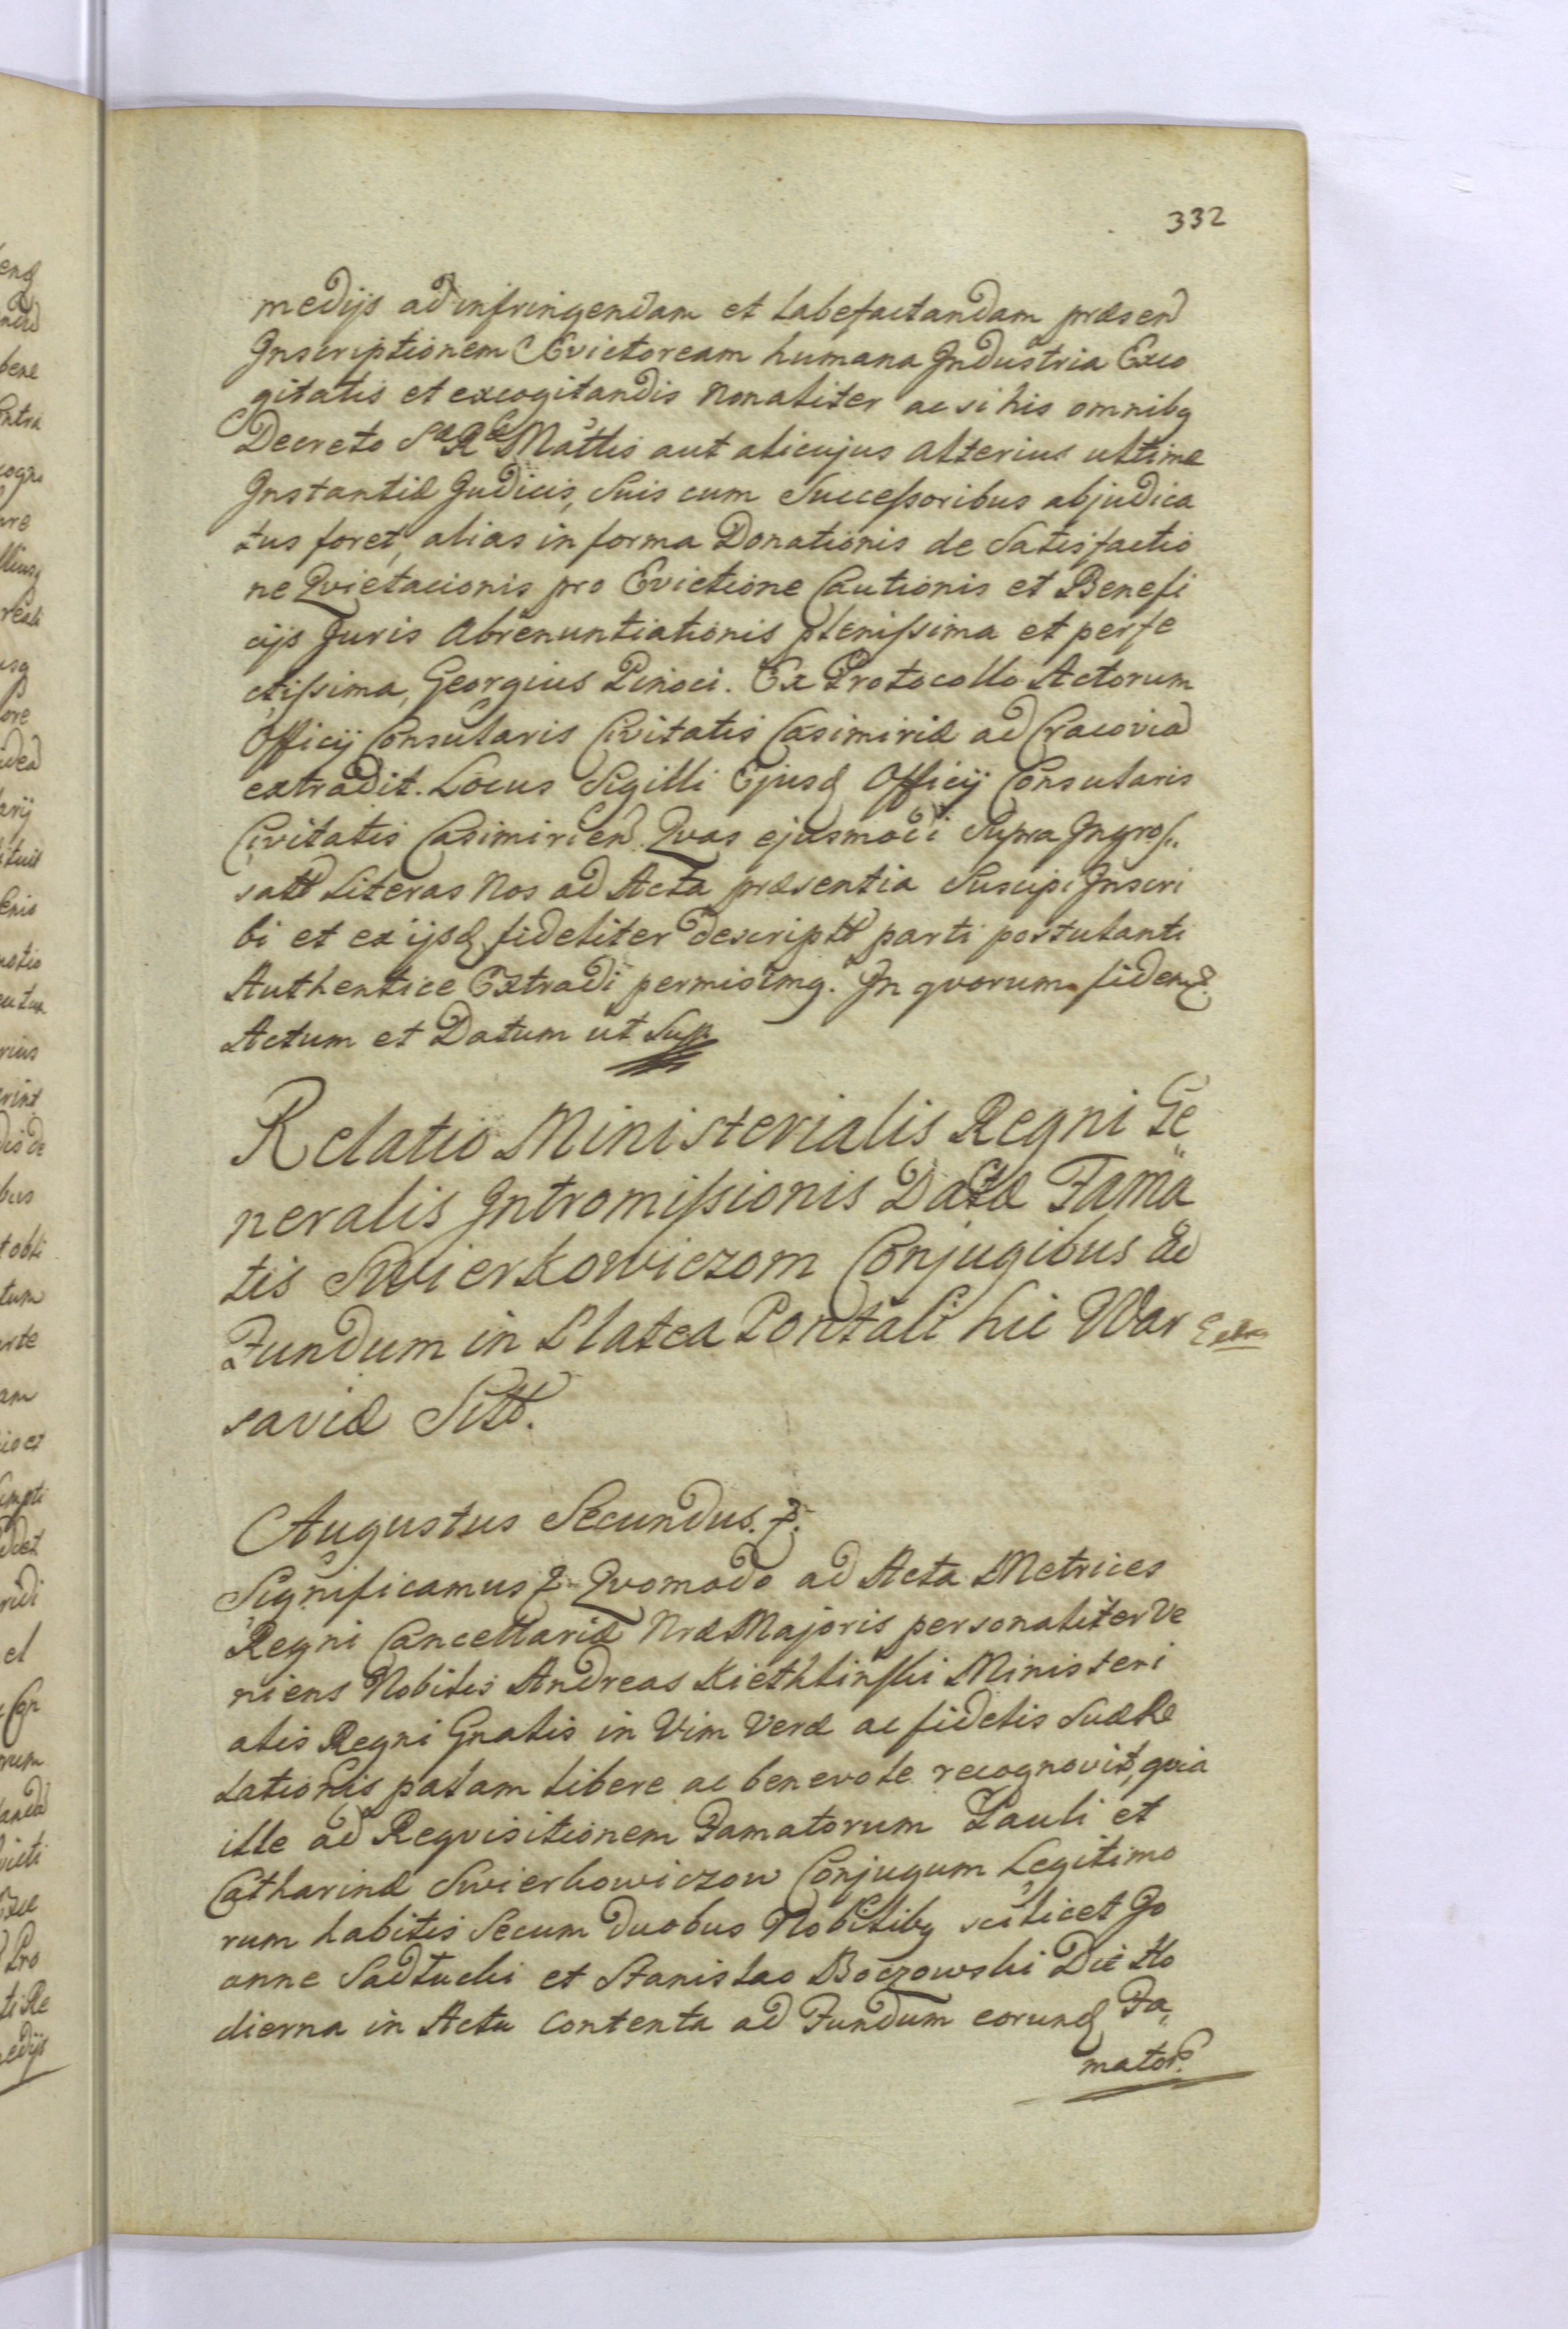 332
medijs ad infringendam et Labefactandam præsen
Inscriptionem Evictoream humana Industria Exco
gitatis et excogitandis nonaliter ac si his omnibq
Decreto Sæ Ræ Mattis aut alicujus alterius ultimæ
Instantiæ Judicis, Suis cum Successoribus abjudica
tus foret, alias in forma Donationis de Satisfactio
ne Qvietacionis pro Evictione Cautionis et Benefi
cijs Juris Abrenuntiationis plenissima et perfe
ctissima, Georgius Pinoci. Ex Protocollo Actorum
Officij Consularis Civitatis Casimiriæ ad Cracovia
extradit. Locus Sigilli Ejusq Officij Consularis
Civitatis Casimirien. Qvas ejusmodi Supra Ingros„
satt Literas Nos ad Acta præsentia Suscipi Inscri
bi et ex ijsq fideliter descriptt parti postulanti
Authentice Extradi permisimq. In qvorum fidem &.
Actum et Datum ut Sup
Relatio Ministerialis Regni Ge„
neralis Intromissionis Datæ Fama
tis Swierkowiczom Conjugibus ad
Fundum in Platea Pontali hic War
saviæ Sitt.
Augustus Secundus. &.
Significamus &. Qvomodo ad Acta Metrices
Regni Cancellariæ Nræ Majoris personaliter Ve
niens Nobilis Andreas Kiethlinski Ministeri
alis Regni Gnalis in Vim Veræ ac fidelis Suæ Re
lationis palam libere ac benevole recognovit, qvia
ille ad Reqvisitionem Famatorum Pauli et
Catharinæ Swierkowiczow Conjugum Legitimo
rum habitis Secum duobus Nobilibq scilicet Jo
anne Sadlucki et Stanislao Boczowski Die Ho
dierna in Actu Contenta ad Fundum eorunq Fa„
mator.